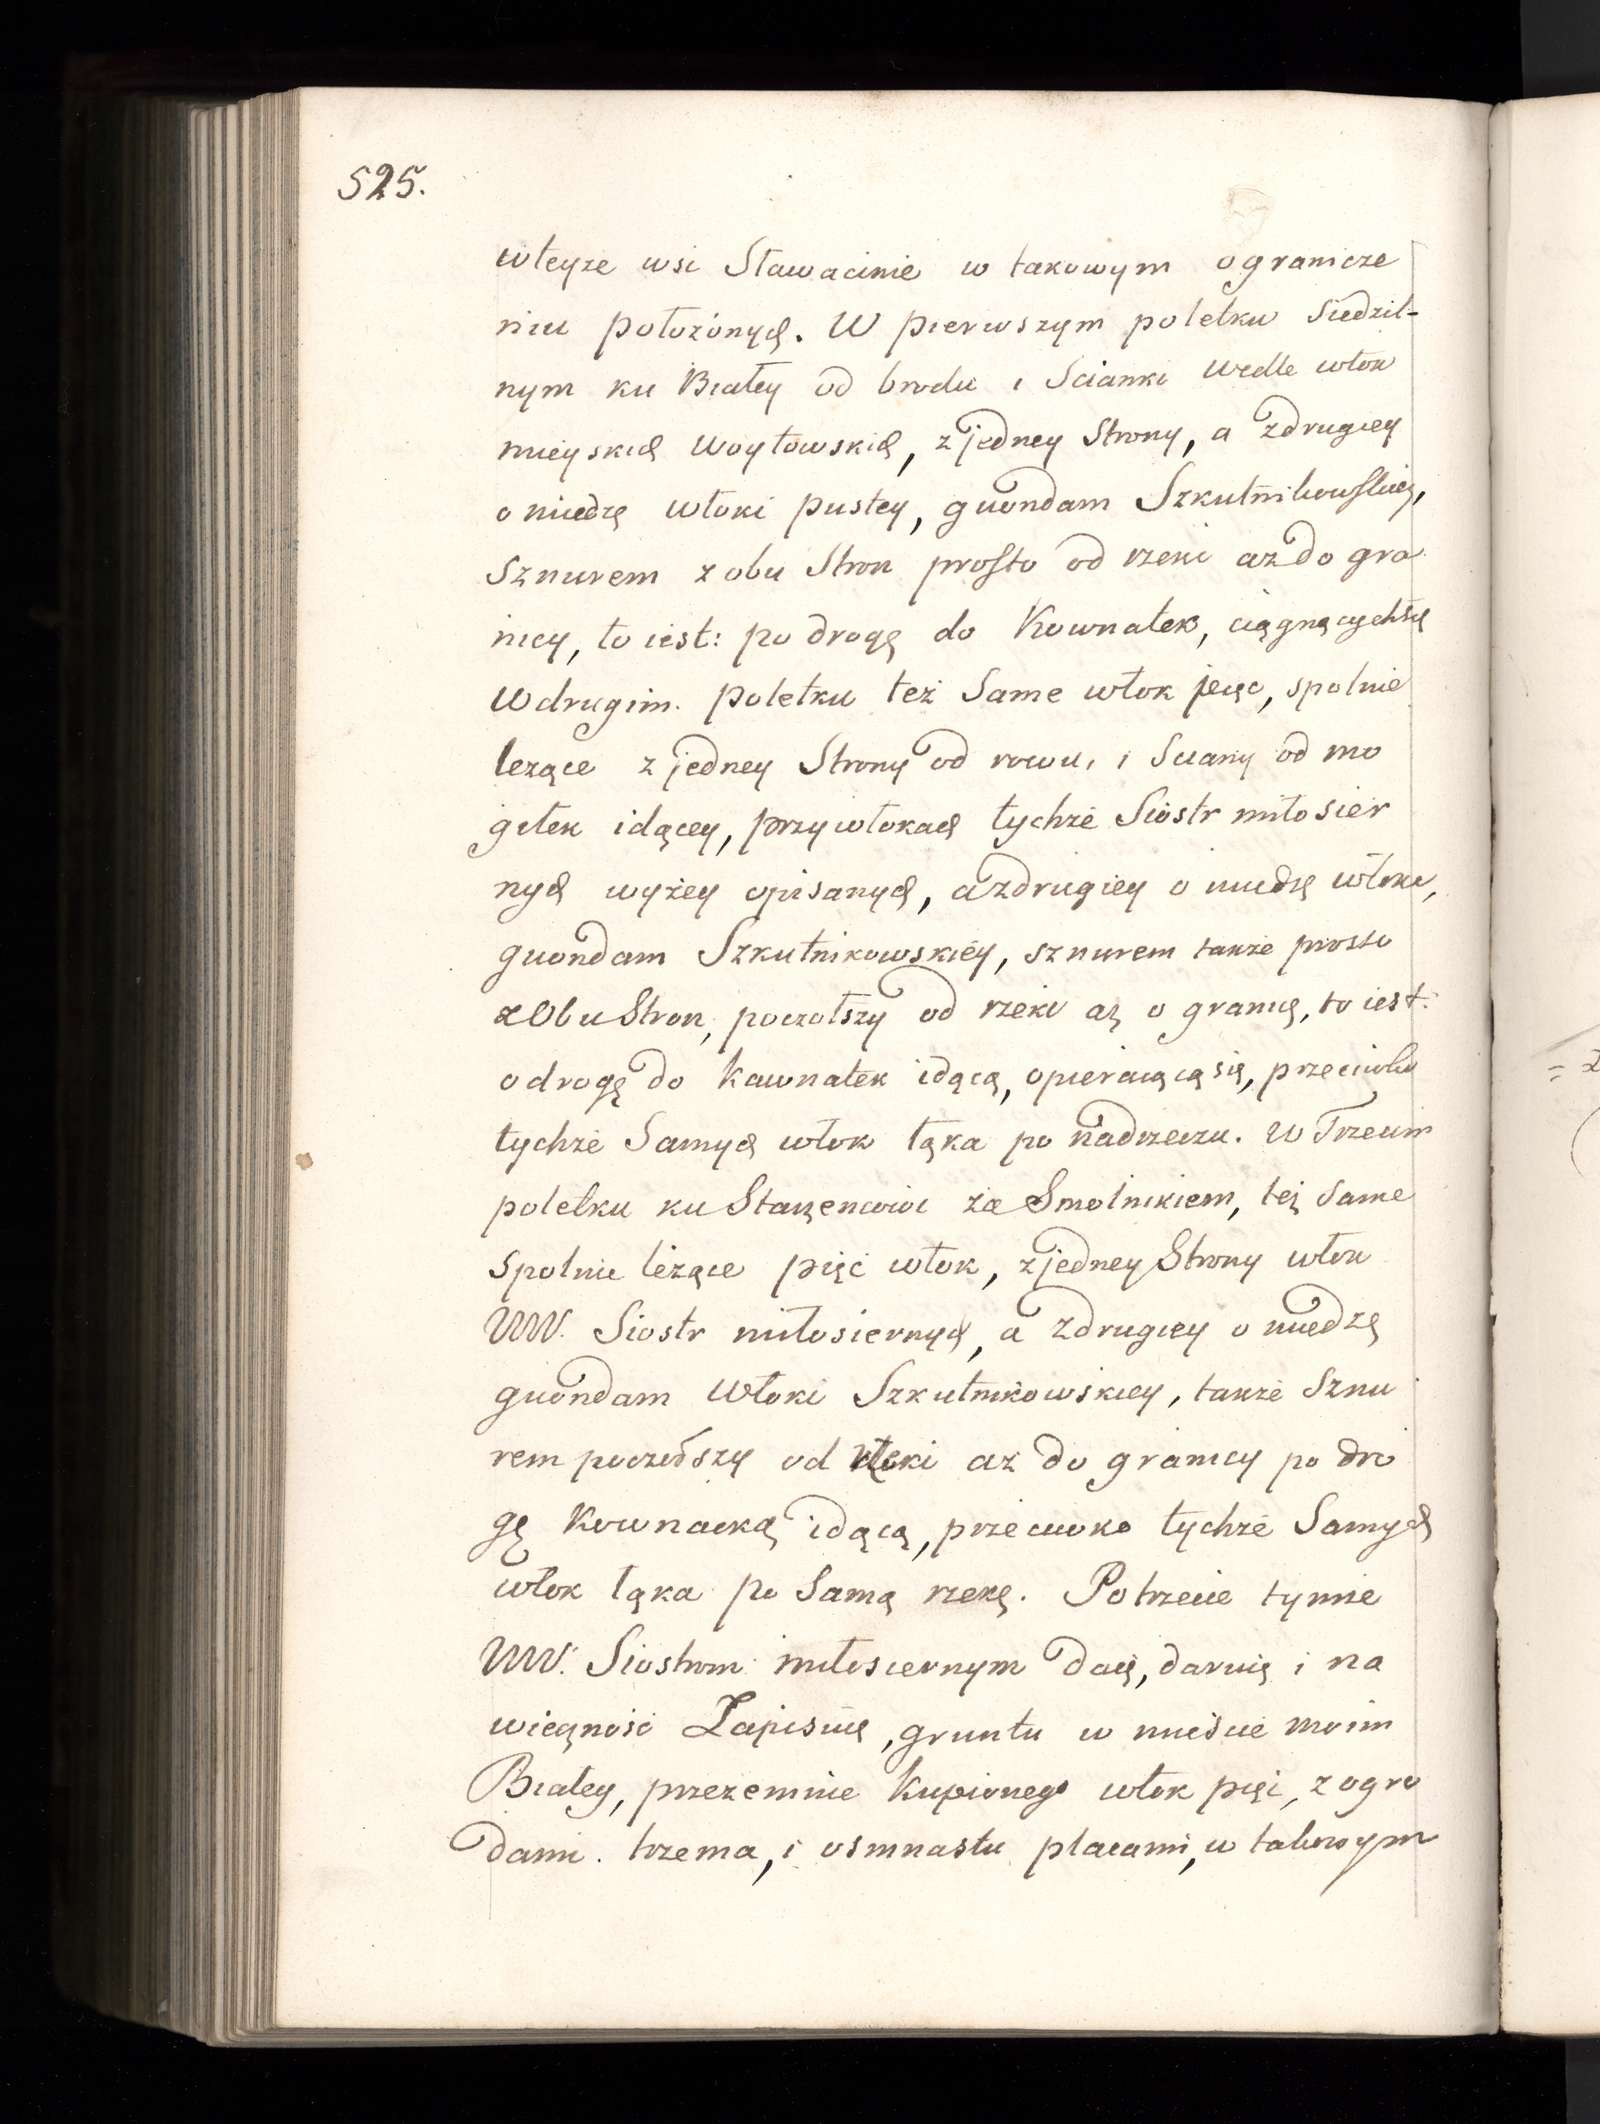 525.
wteyże wsi Sławacinie w takowym ogranicze
niu położónych. W pierwszym poletku Siedzil-
nym ku Białey od brodu i Scianki wedle włok
mieyskich woytowskich, z jedney Strony, a zdrugiey
o miedzę włoki pustey, quondam Szkutnikowskiey,
Sznurem z obu Stron prosto od rzeki aż do gra
nicy, to iest: po drogę do Kownatek, ciągnącychsię
W drugim poletku też Same włok pięc, spolnie
leżące z jedney Strony od rowu, i Sciany od mo
giłek idącey, przy włokach tychże Siostr miłosier
nych wyżey opisanych, a zdrugiey o miedzę włoki,
quondam Szkutnikowskiéy, sznurem także prosto
z Obu Stron, pocżąłszy od rzeki aż o granicę, to iest:
o drogę do Kawnatek idącą, opieraiącą się, przeciwko
tychże Samych włok łąka po nadrzeczu. W Trzecim
poletku ku za Smolnikiem, też Same
Spolnie leżące pięć włok, z jedney Strony włok
WW. Siostr miłosiernych, a zdrugiey o miedzę
quondam Włoki Szkutnikowskiey, także Sznu
rem począłszy od aż do granicy po dro
gę Kownacką idącą, przeciwko tychże Samych
włok łąka po Samą rzekę. Potrzecie tymże
WW. Siostrom miłosiernym daię, daruię i na
wiecżność Zapisuię, gruntu w mieście moim
Białey, przezemnie kupionego włok pięć, z ogro
dami trzema, i osmnastu placami, w takowym